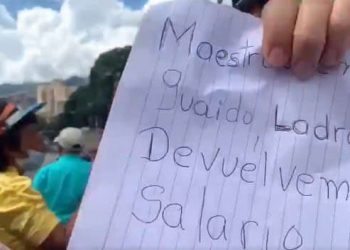 Maestr
guaido, Ladr
Devuélvem
Salario